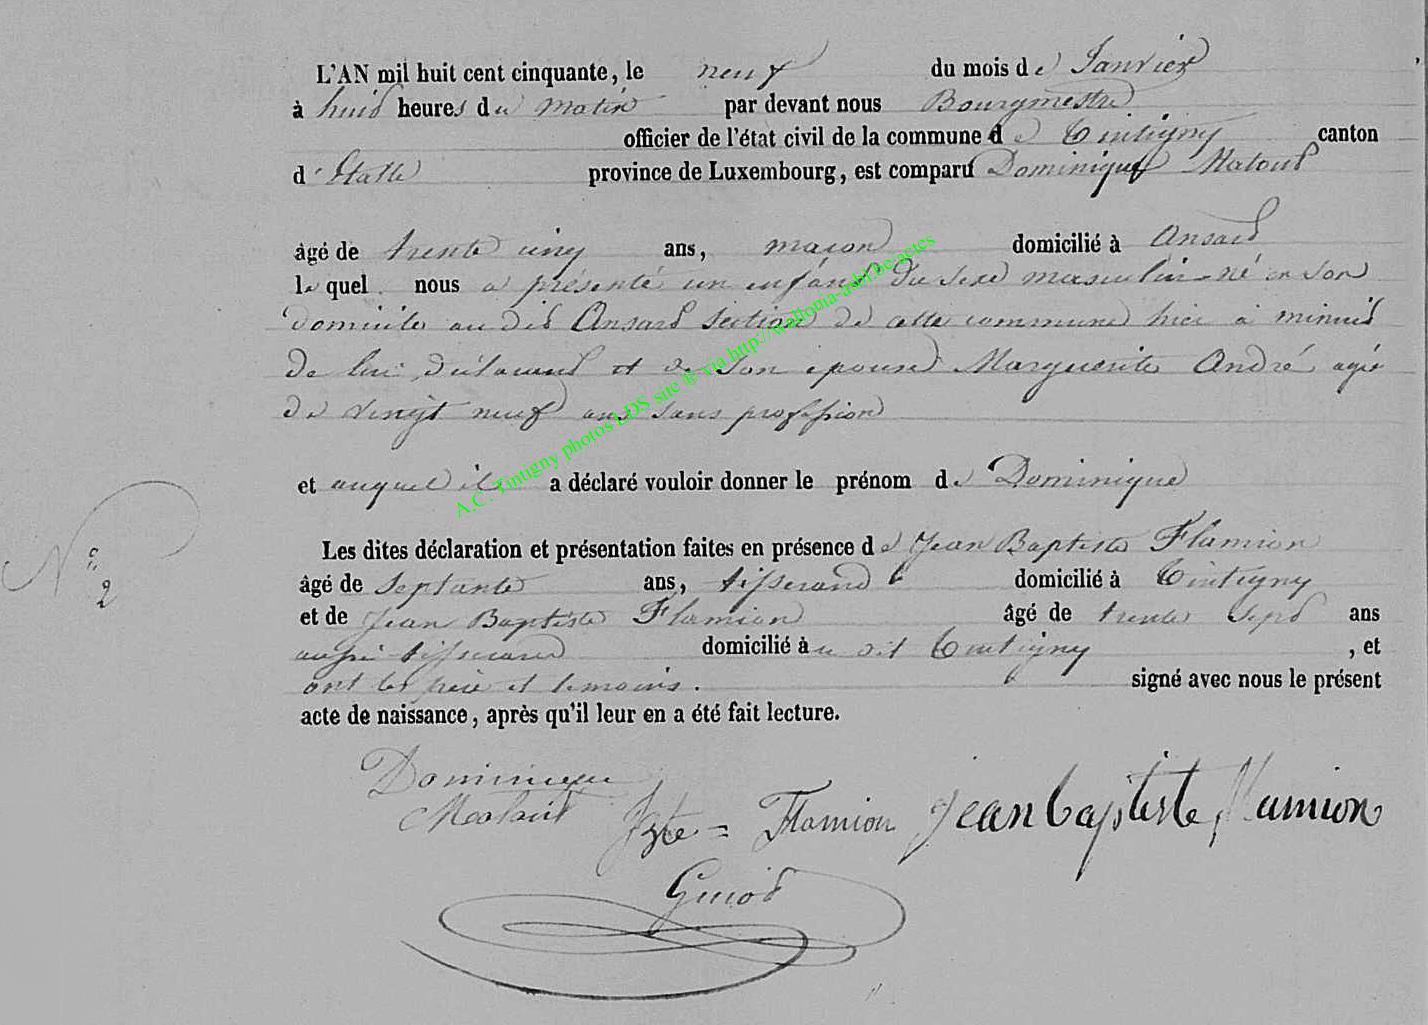 L'AN mil huit cent cinquante, le neuf du mois de Janvier
à huit heures du matin par devant nous Bourgmestre
officier de l'état civil de la commune de Tintigny canton
d'Etalle province de Luxembourg, est comparu Dominique Malout
âgé de trente cinq ans, maçon domicilié à Ansart
lequel nous a présenté un enfant du sexe masculin né en son
domicile au dit Ansart section de cette commune hier a minuit
de lui déclarant et de son épouse Marguerite André agée
de vingt neuf ans sans profession
et auquel il a déclaré vouloir donner le prénom de Dominique
Les dites déclaration et présentation faites en présence de Jean Baptiste Flamion
N° 2
âgé de septante ans, tisserand domicilié à Tintigny
et de Jean Baptiste Flamion âgé de trente sept ans
aussi tisserand domicilié au dit Tintigny , et
ont les père et temoins . signé avec nous le présent
acte de naissance, après qu'il leur en a été fait lecture.
Dominique
Malout Jbte = Flamion Jean baptiste flamion
Guiot
A.C. Tintigny photos LDS site ® via http://wallonia-asbl.be/actes